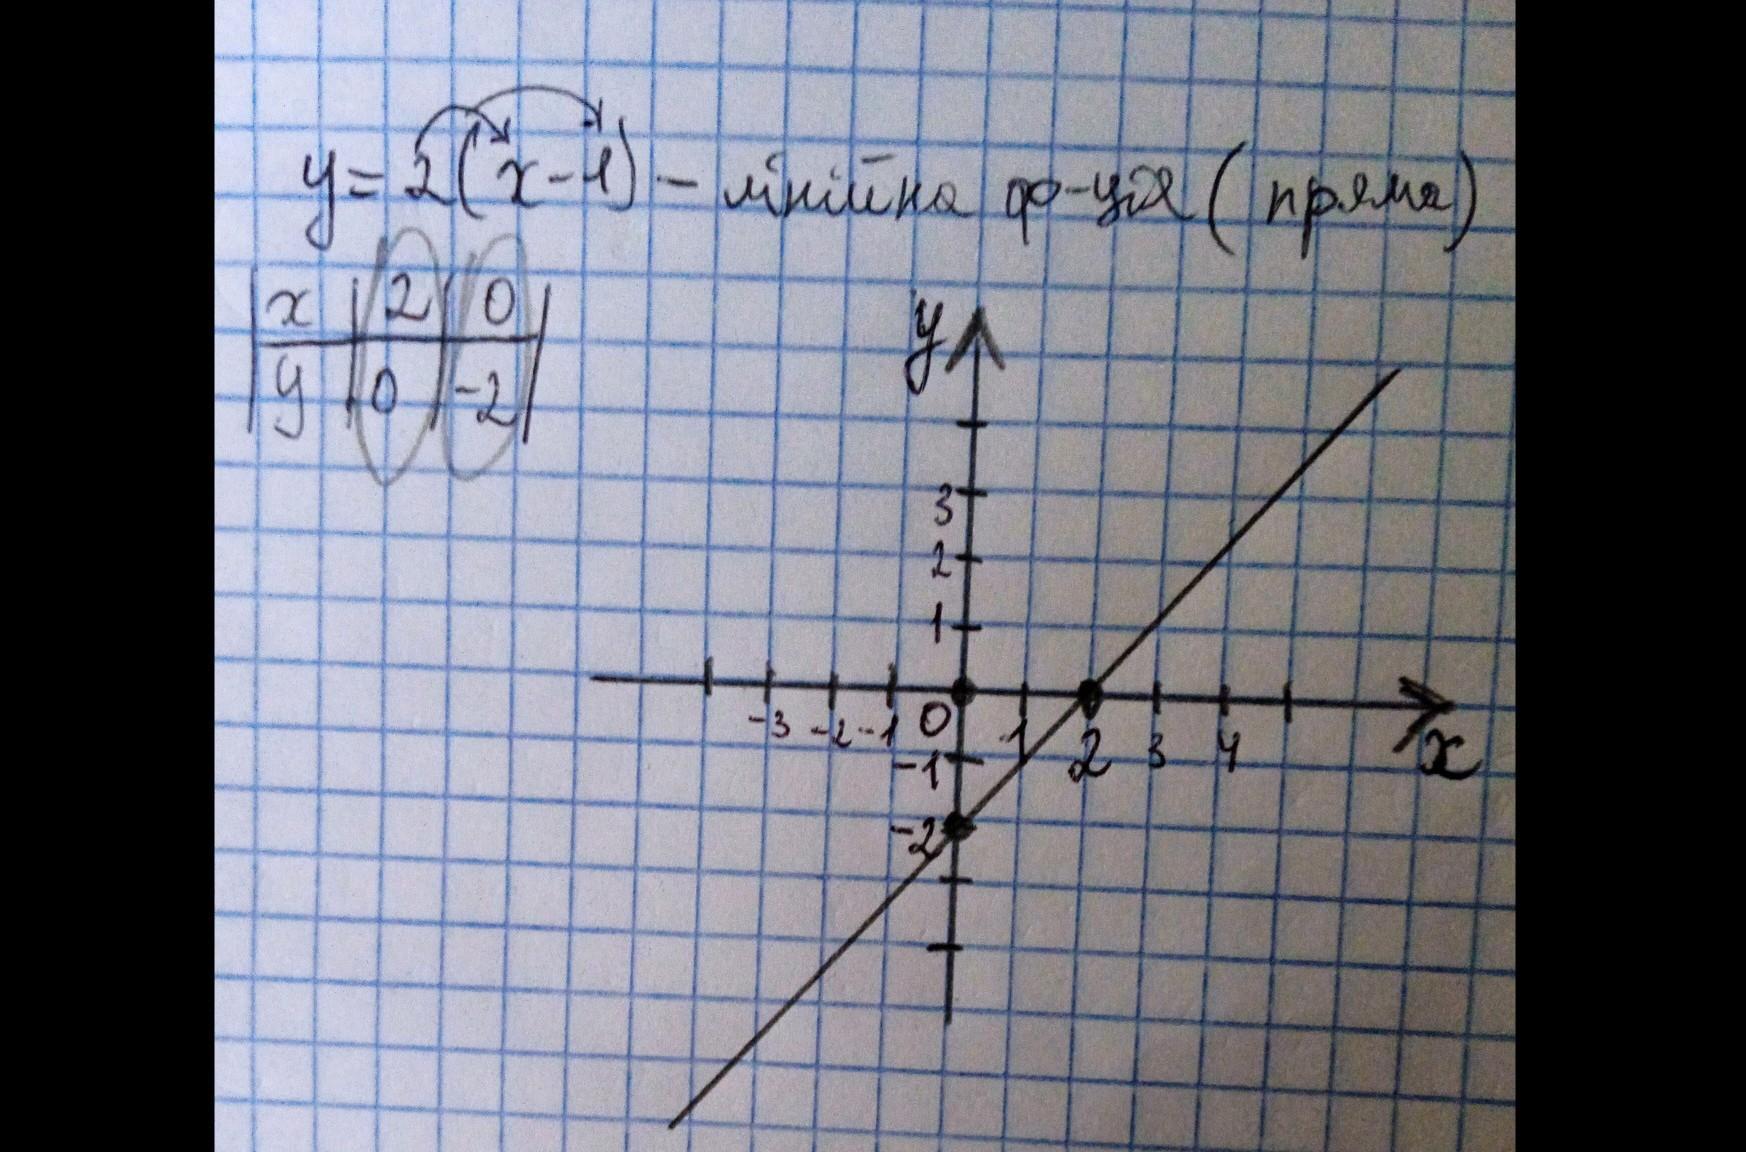 y = 2(x-1) - лінійна ф-ція (пряма)
x 2 0
y 0 -2
y
3
2
1
-3 -2 -1 0 1 2 3 4 x
-1
-2